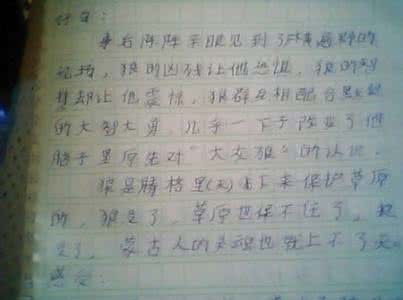 事后陈阵亲眼见到了遍野的
战场，狼的凶残让他恐惧，狼的智
慧却让他震惊，狼群互相配合默契
的大智大勇，几乎一下子改变了他
脑子里原先对“大灰狼”的认识.
狼是腾格里(天)派下来保护草原
的，狼没了，草原也保不住了，狼
没了，蒙古人的灵魂也就上不了天。
感受：